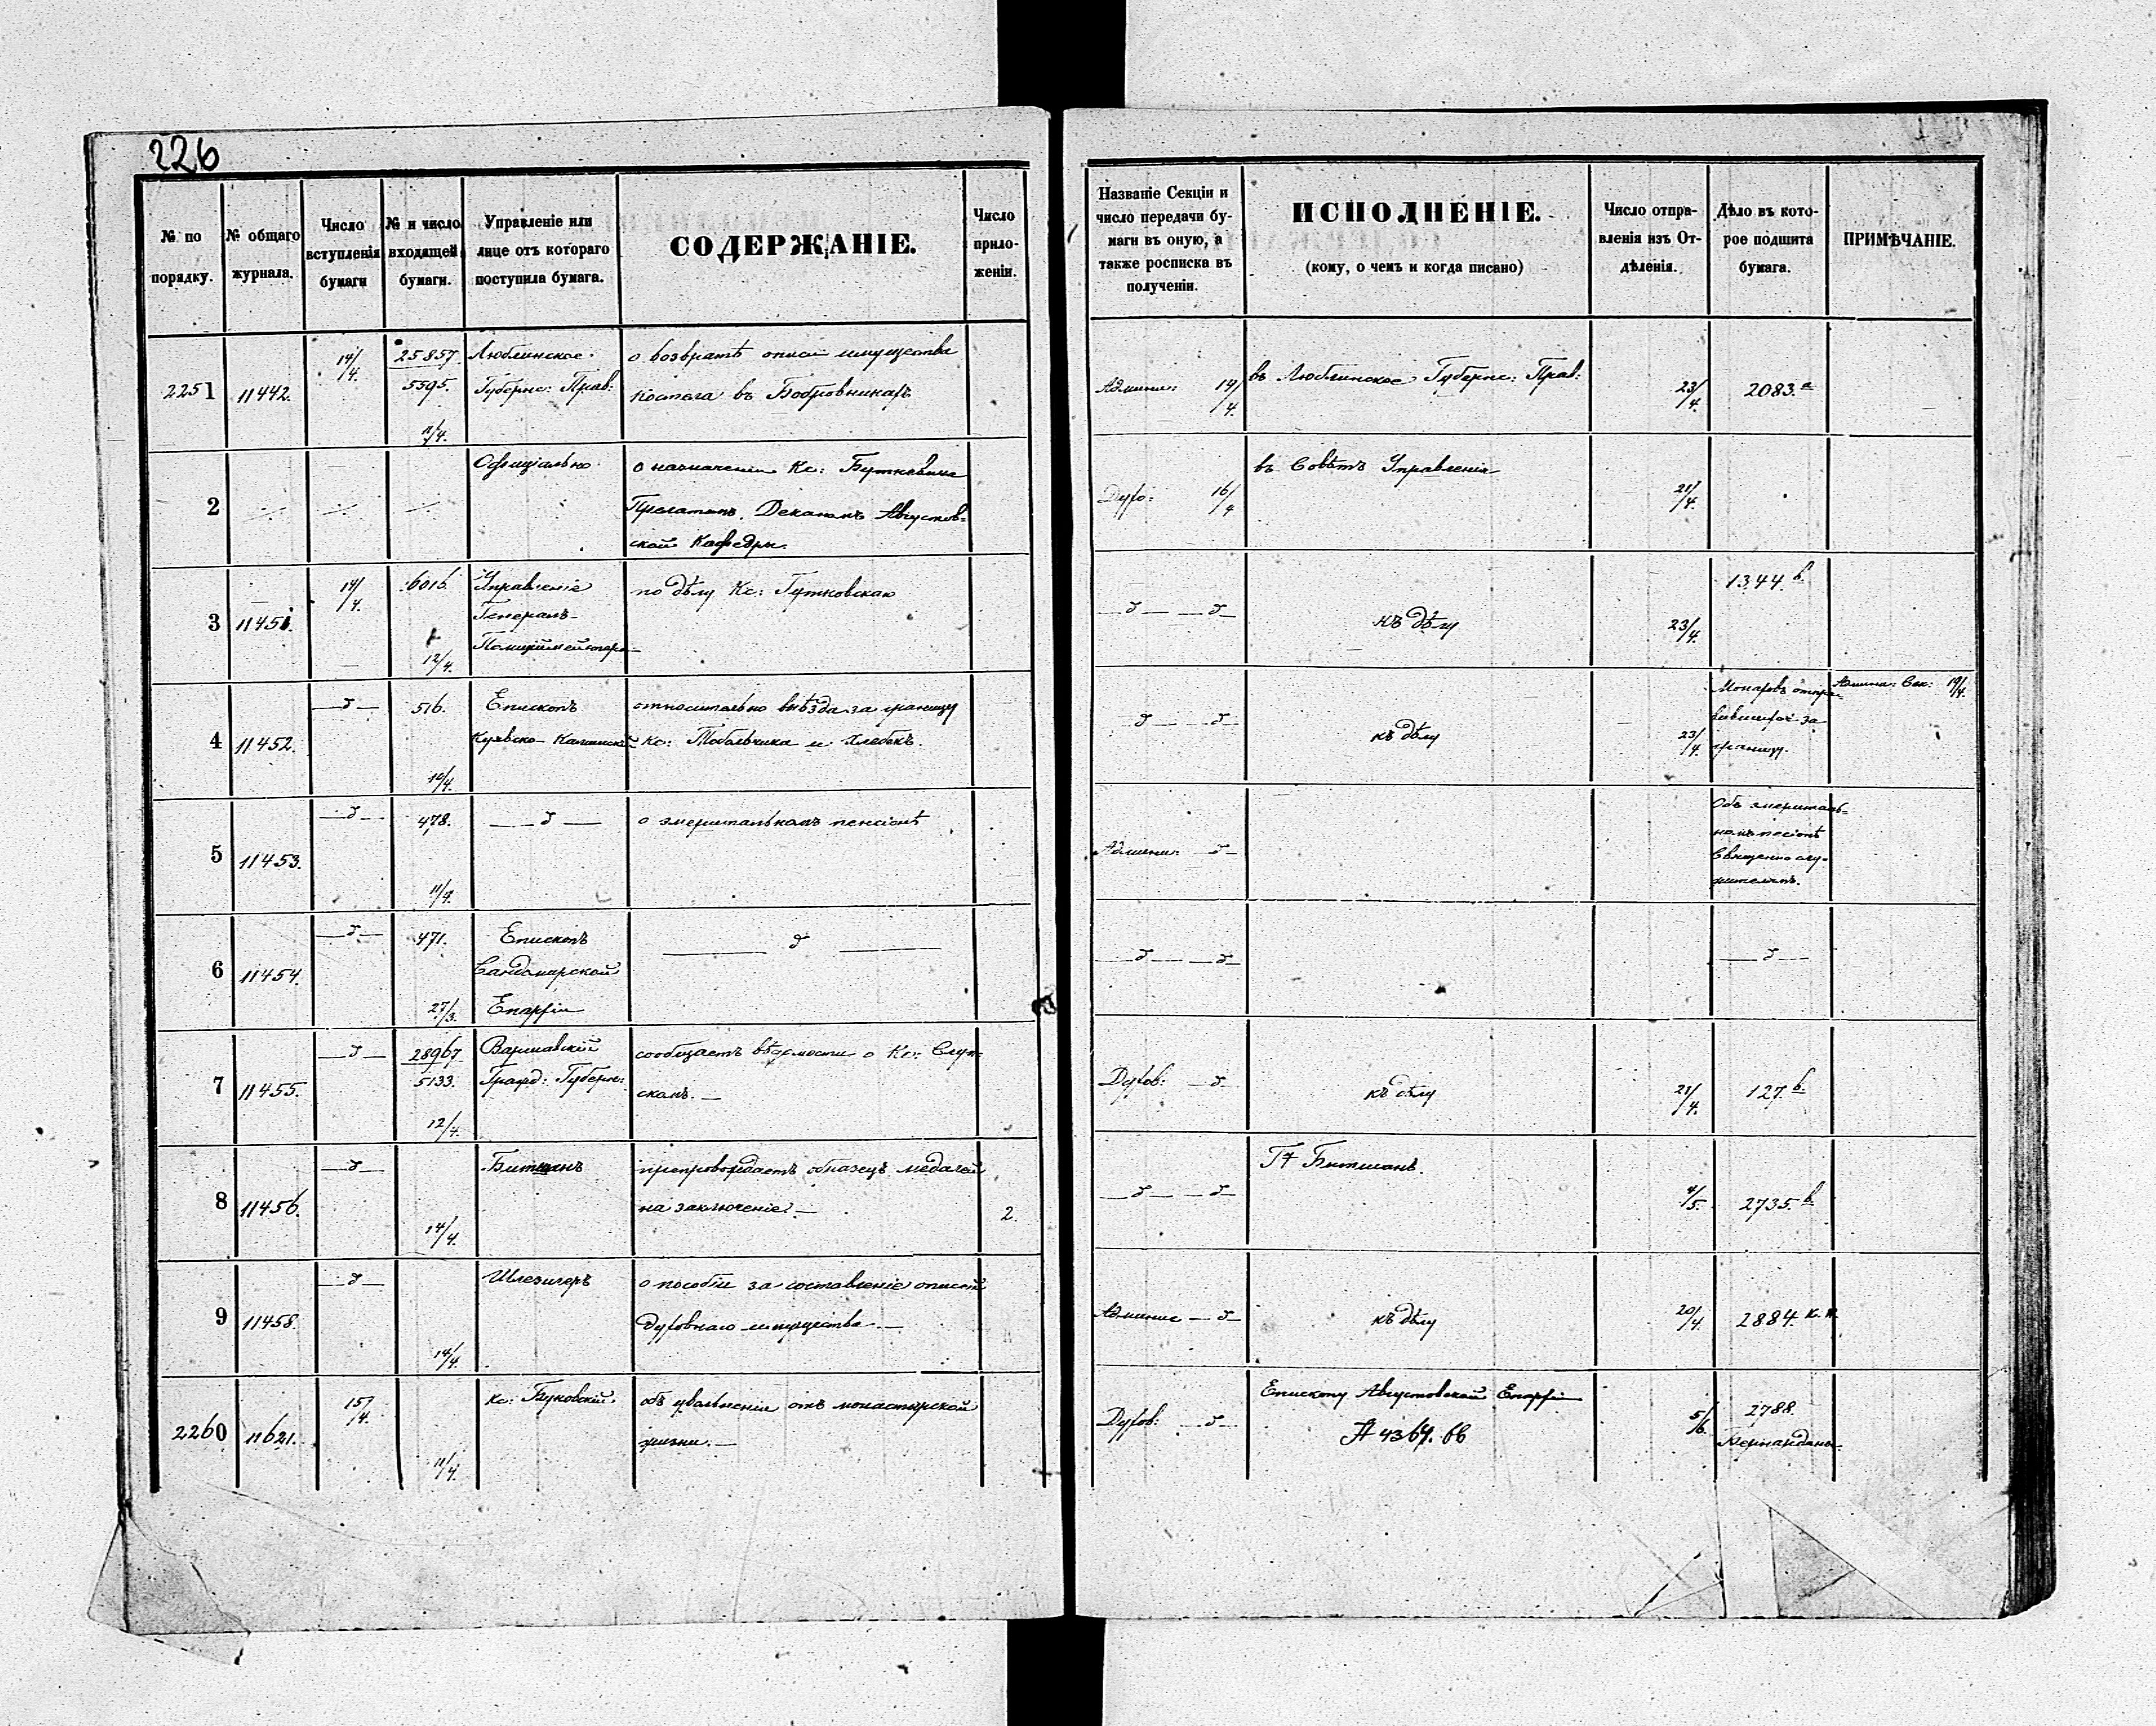 226
№ по
порядку.
№ общаго
журнала.
Число
вступленія
бумаги
№ и число
входящей
бумаги.
Управленіе или
лице отъ котораго
поступила бумага.
СОДЕРЖАНІЕ.
Число
прило-
женіи.
Названіе Секціи и
число передачи бу-
маги въ оную, а
также росписка въ
полученіи.
ИСПОЛНЕНІЕ.
(кому, о чемъ и когда писано)
Число отпра-
вленія изъ От-
дѣленія.
Дѣло въ кото-
рое подшита
бумага.
ПРИМѢЧАНІЕ.
2251
11442.
14/4.
25857.
5595.
11/4.
Люблинское
Губернс: Прав:
о возвратѣ описи имущества
костела въ Бобровникахъ
Админи: 14/4.
въ Люблинское Губернс: Прав:
23/4.
2083.a
2
Официально
о назначеніи Кс: Буткевича
Прелатомъ, Деканомъ Августов-
ской Кафедры.
Духо: 16/4
въ Совѣтъ Управленія
21/4.
3
11451.
14/4.
6016.
12/4.
Управленіе
Генералъ-
Полицiймейстера
по дѣлу Кс: Гутковскаго
—д— —д—
къ дѣлу
23/4.
1344.b
4
11452.
—д—
516.
10/4.
Епископъ
Куявско-Калишскій
относительно выѣзда за границу
Кс: Тобольчика и Хлебекъ.
д— —д—
къ дѣлу
23/4.
Монаховъ отпра-
вившихся за
границу.
Админ: Сек: 19/4.
5
11453.
—д—
478.
11/4.
—д—
о эмеритальномъ пенсіонѣ
Админи: д—
Объ эмериталь-
номъ песіонѣ
Священно слу-
жителямъ.
6
11454.
—д—
471.
27/3.
Епископъ
Сандомирской
Епархіи
— д —
—д— —д—
—д—
7
11455.
—д—
28967.
5133.
12/4.
Варшавскій
Гражд: Губерн:
сообщаетъ вѣдомости о Кс: Слуп-
скомъ.—
Духов: —д.
къ дѣлу
21/4.
127.b
8
11456.
—д—
14/4.
Битманъ
препровождаетъ образецъ медалей
на заключеніе.—
2.
—д— —д—
Гу Битманъ.
4/5.
2735.b
9
11458.
—д—
14/4.
Шлезигеръ
о пособіи за составленіе описей
духовнаго имущества.—
Админис —д—
къ дѣлу
20/4.
2884. к. к.
2260
11621.
15/4.
11/4.
Кс: Буковскій
объ увольненіи отъ монастырской
жизни.—
Духов: —д—
Епископу Августовской Епархіи
№ 4364. 66
5/6.
2788.